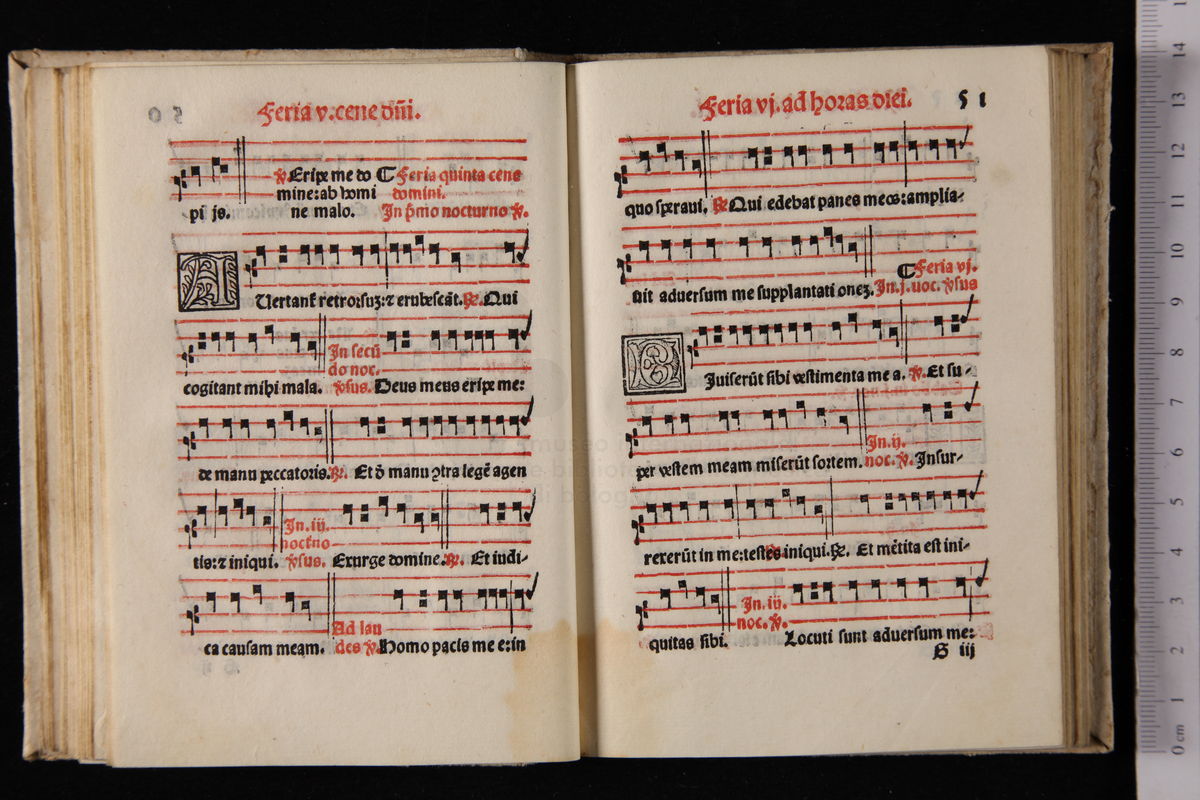 Feria v. cene dñi.
℣ Eripe me do ¶ Feria quinta cene
mine: ab homi domini.
pi js. ne malo. In p̄mo nocturno ℣.
A Uertant̃ retrorsuz: ⁊ erubescãt. ℟. Qui
In secũ
do noc.
cogitant mihi mala. ℣sus. Deus meus eripe me:
de manu peccatoris. ℟. Et õ manu ↄtra legẽ agen
In. iij.
noctno
tis: ⁊ iniqui. ℣sus. Exurge domine. ℟. Et iudi-
Ad lau
ca causam meam. des ℣. Homo pacis me e: in
Feria vj. ad horas diei. 51
quo speraui. ℟ Qui edebat panes meos: amplia-
¶ Feria vj.
uit aduersum me supplantati onez. In. j. noc. ℣sus
D Iuiserũt sibi vestimenta me a. ℟. Et su-
In. ij.
per vestem meam miserũt sortem. noc. ℣. Insur-
rexerũt in me: testes iniqui. ℟. Et mẽtita est ini-
In. iij.
noc. ℣.
quitas sibi. Locuti sunt aduersum me:
G iij
0 cm 1 2 3 4 5 6 7 8 9 10 11 12 13 14
museo